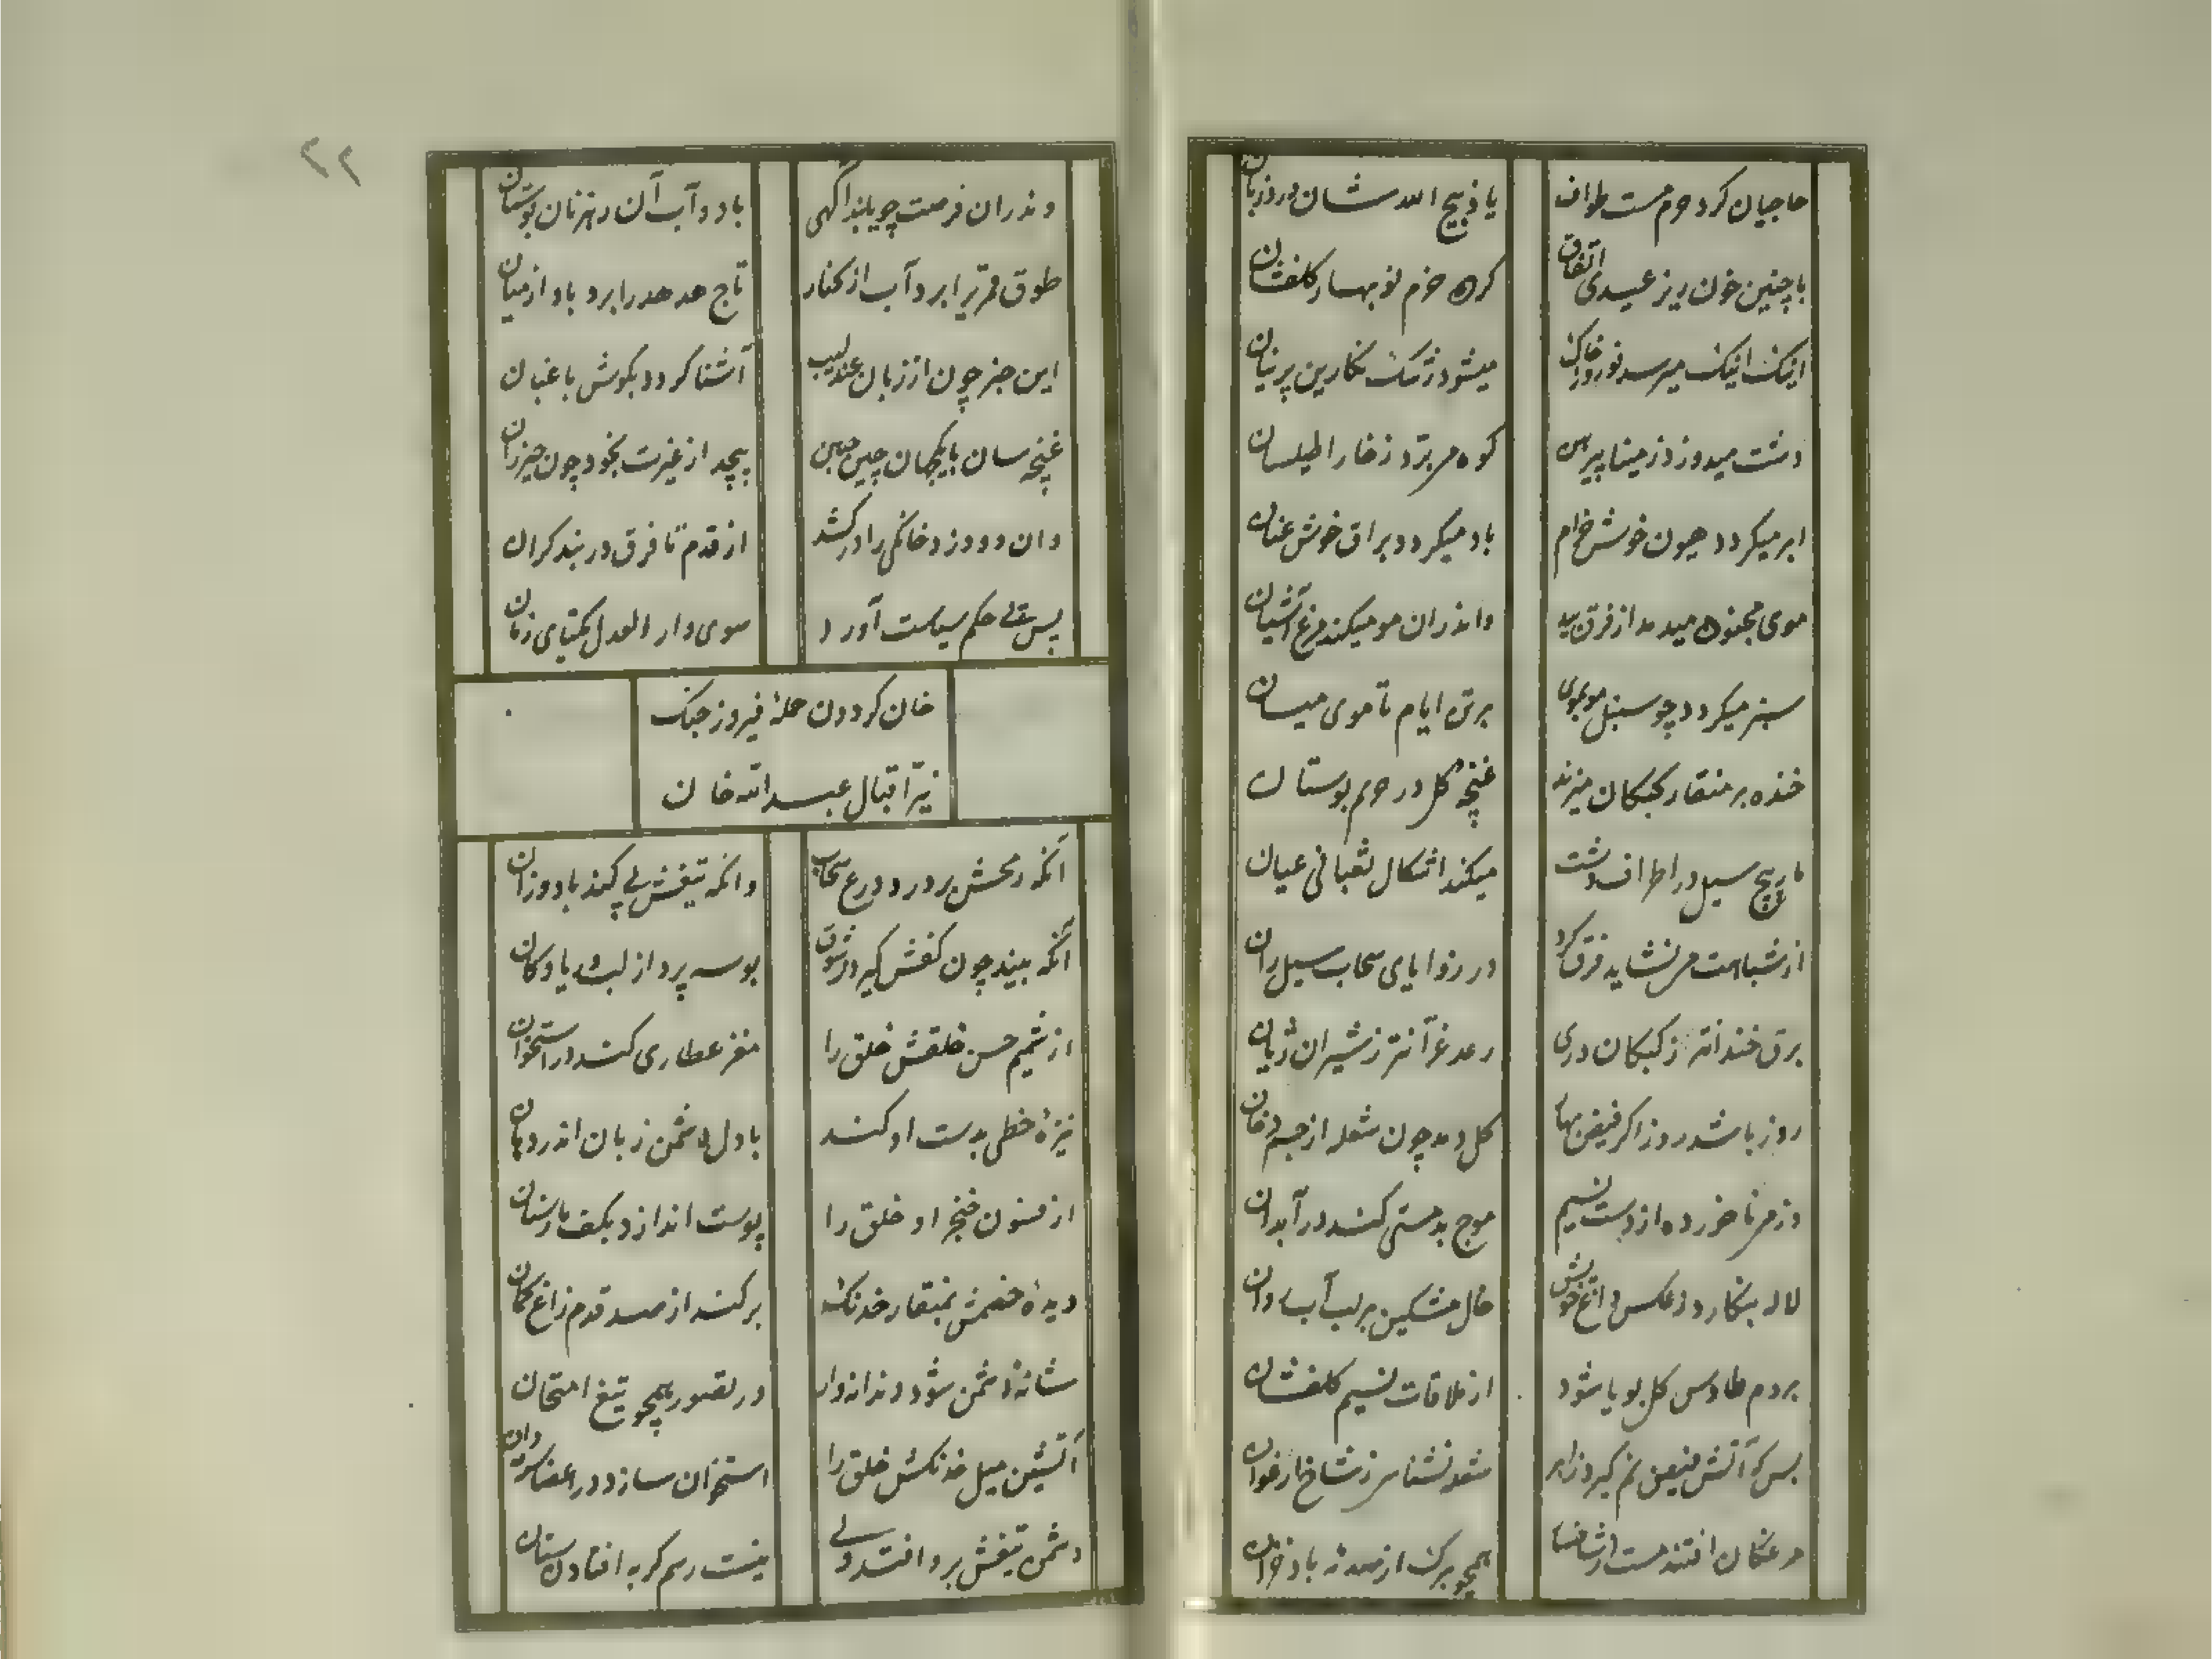 حاجیان کرد حرم مست طواف
یا ذبیح الله شان ورد زبان
با چنین خون ریز عیدی اتفاق
کرده خرم نوبهار گلفشان
اینک اینک میرسد نوروز خاک
میشود رشک نگارین پرنیان
دشت میدوزد ز مینا پیرهن
کوه می برد ز خارا طیلسان
ابر میگردد هیون خوش خرام
باد میگردد براق خوش عنان
موی مجنون میدمد از فرق بید
واندران مو میکند مرغ آشیان
سبز میگردد چو سنبل موبموی
بر تن ایام تا موی میان
خنده بر منقار کبکان میزند
غنچه گل در حریم بوستان
مارپیچ سیل در اطراف دشت
میکند اشکال ثعبانی عیان
از شباهت می نشاید فرق کرد
در زوایای سحاب سیل ران
برق خندانتر ز کبکان دری
رعد غرانتر ز شیران ژیان
روز باشد روز اگر فیض بهار
گل دمد چون شعله از جیب دخان
وز می ناخورده از دست نسیم
موج بدمستی کند در آبدان
لاله بنگارد ز عکس داغ خویش
خال مشکین بر لب آب روان
بر دم طاوس گل بویا شود
از ملاقات نسیم گلفشان
بس که آتش فیض نم گیرد ز ابر
شعله نشناسی ز شاخ ارغوان
مرغکان افتند مست از شاخسار
همچو برگ از صدمه باد خزان
۲۲
وندران فرصت چو یابند آگهی
باد و آب آن رهزنان بوستان
طوق قمری را برد آب از کنار
تاج هدهد را برد باد از میان
این خبر چون از زبان عندلیب
آشنا گردد بگوش باغبان
غنچه سان با یکجهان چین جبین
پیچد از غیرت بخود چون خیزران
وان دو دزد خانگی را در کشد
از قدم تا فرق در بند گران
پس بحکم سیاست آورد
سوی دار العدل یکتای زمان
خان گردون حمله فیروز جنگ
نیر اقبال عبدالله خان
آنکه رمحش بر درد درع سحاب
وانکه تیغش پی کند باد وزان
آنکه بیند چون کفش گیرد ز شوق
بوسه پرداز لب دریا و کان
از شمیم حسن خلقش خلق را
مغز عطاری کند در استخوان
نیزه خطی بدست او کند
با دل دشمن زبان اندر دهان
از فسون خنجر او خلق را
پوست اندازد بکف مارسنان
دیده خصمش بمنقار خدنگ
برکند از صد قدم زاغ کمان
شانه دشمن شود دندانه دار
در تصور همچو تیغ امتحان
آتشین میل خدنگش خلق را
استخوان سازد در اعضا
دشمن تیغش برو افتد ولی
نیست رسم گریه افتادن ستان